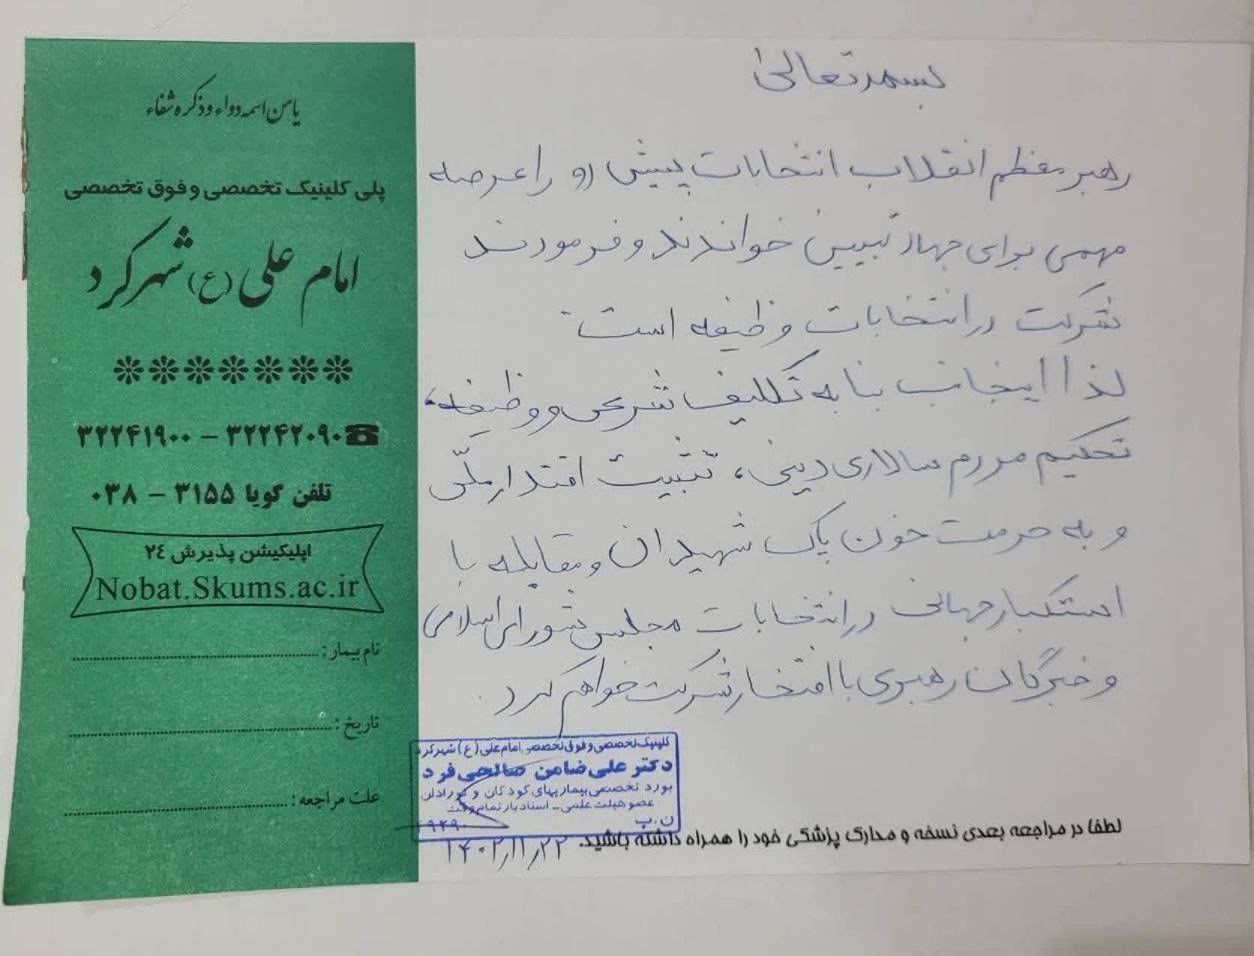 بسمه تعالی
رهبر معظم انقلاب انتخابات پیش رو را عرصه
مهمی برای جهاد تبیین خواندند و فرمودند
شرکت در انتخابات وظیفه است.
لذا اینجانب بنا به تکلیف شرعی و وظیفه،
تحکیم مردم سالاری دینی، تثبیت اقتدار ملّی
و به حرمت خون پاک شهیدان و مقابله با
استکبار جهانی در انتخابات مجلس شورای اسلامی
و خبرگان رهبری با افتخار شرکت خواهم کرد.
کلینیک تخصصی و فوق تخصصی امام علی (ع) شهرکرد
دکتر علی ضامن صالحی فرد
بورد تخصصی بیماریهای کودکان و نوزادان
عضو هیئت علمی - استادیار تمام وقت
ن.پ
۱۴۰۲,۱۱,۲۲
لطفا در مراجعه بعدی نسخه و مدارک پزشکی خود را همراه داشته باشید.
یا من اسمه دواء و ذکره شفاء
پلی کلینیک تخصصی و فوق تخصصی
امام علی (ع) شهرکرد
۳۲۲۴۱۹۰۰ - ۳۲۲۴۲۰۹۰
تلفن گویا ۳۱۵۵ - ۰۳۸
اپلیکیشن پذیرش ۲٤
Nobat.Skums.ac.ir
نام بیمار:
تاریخ:
علت مراجعه: